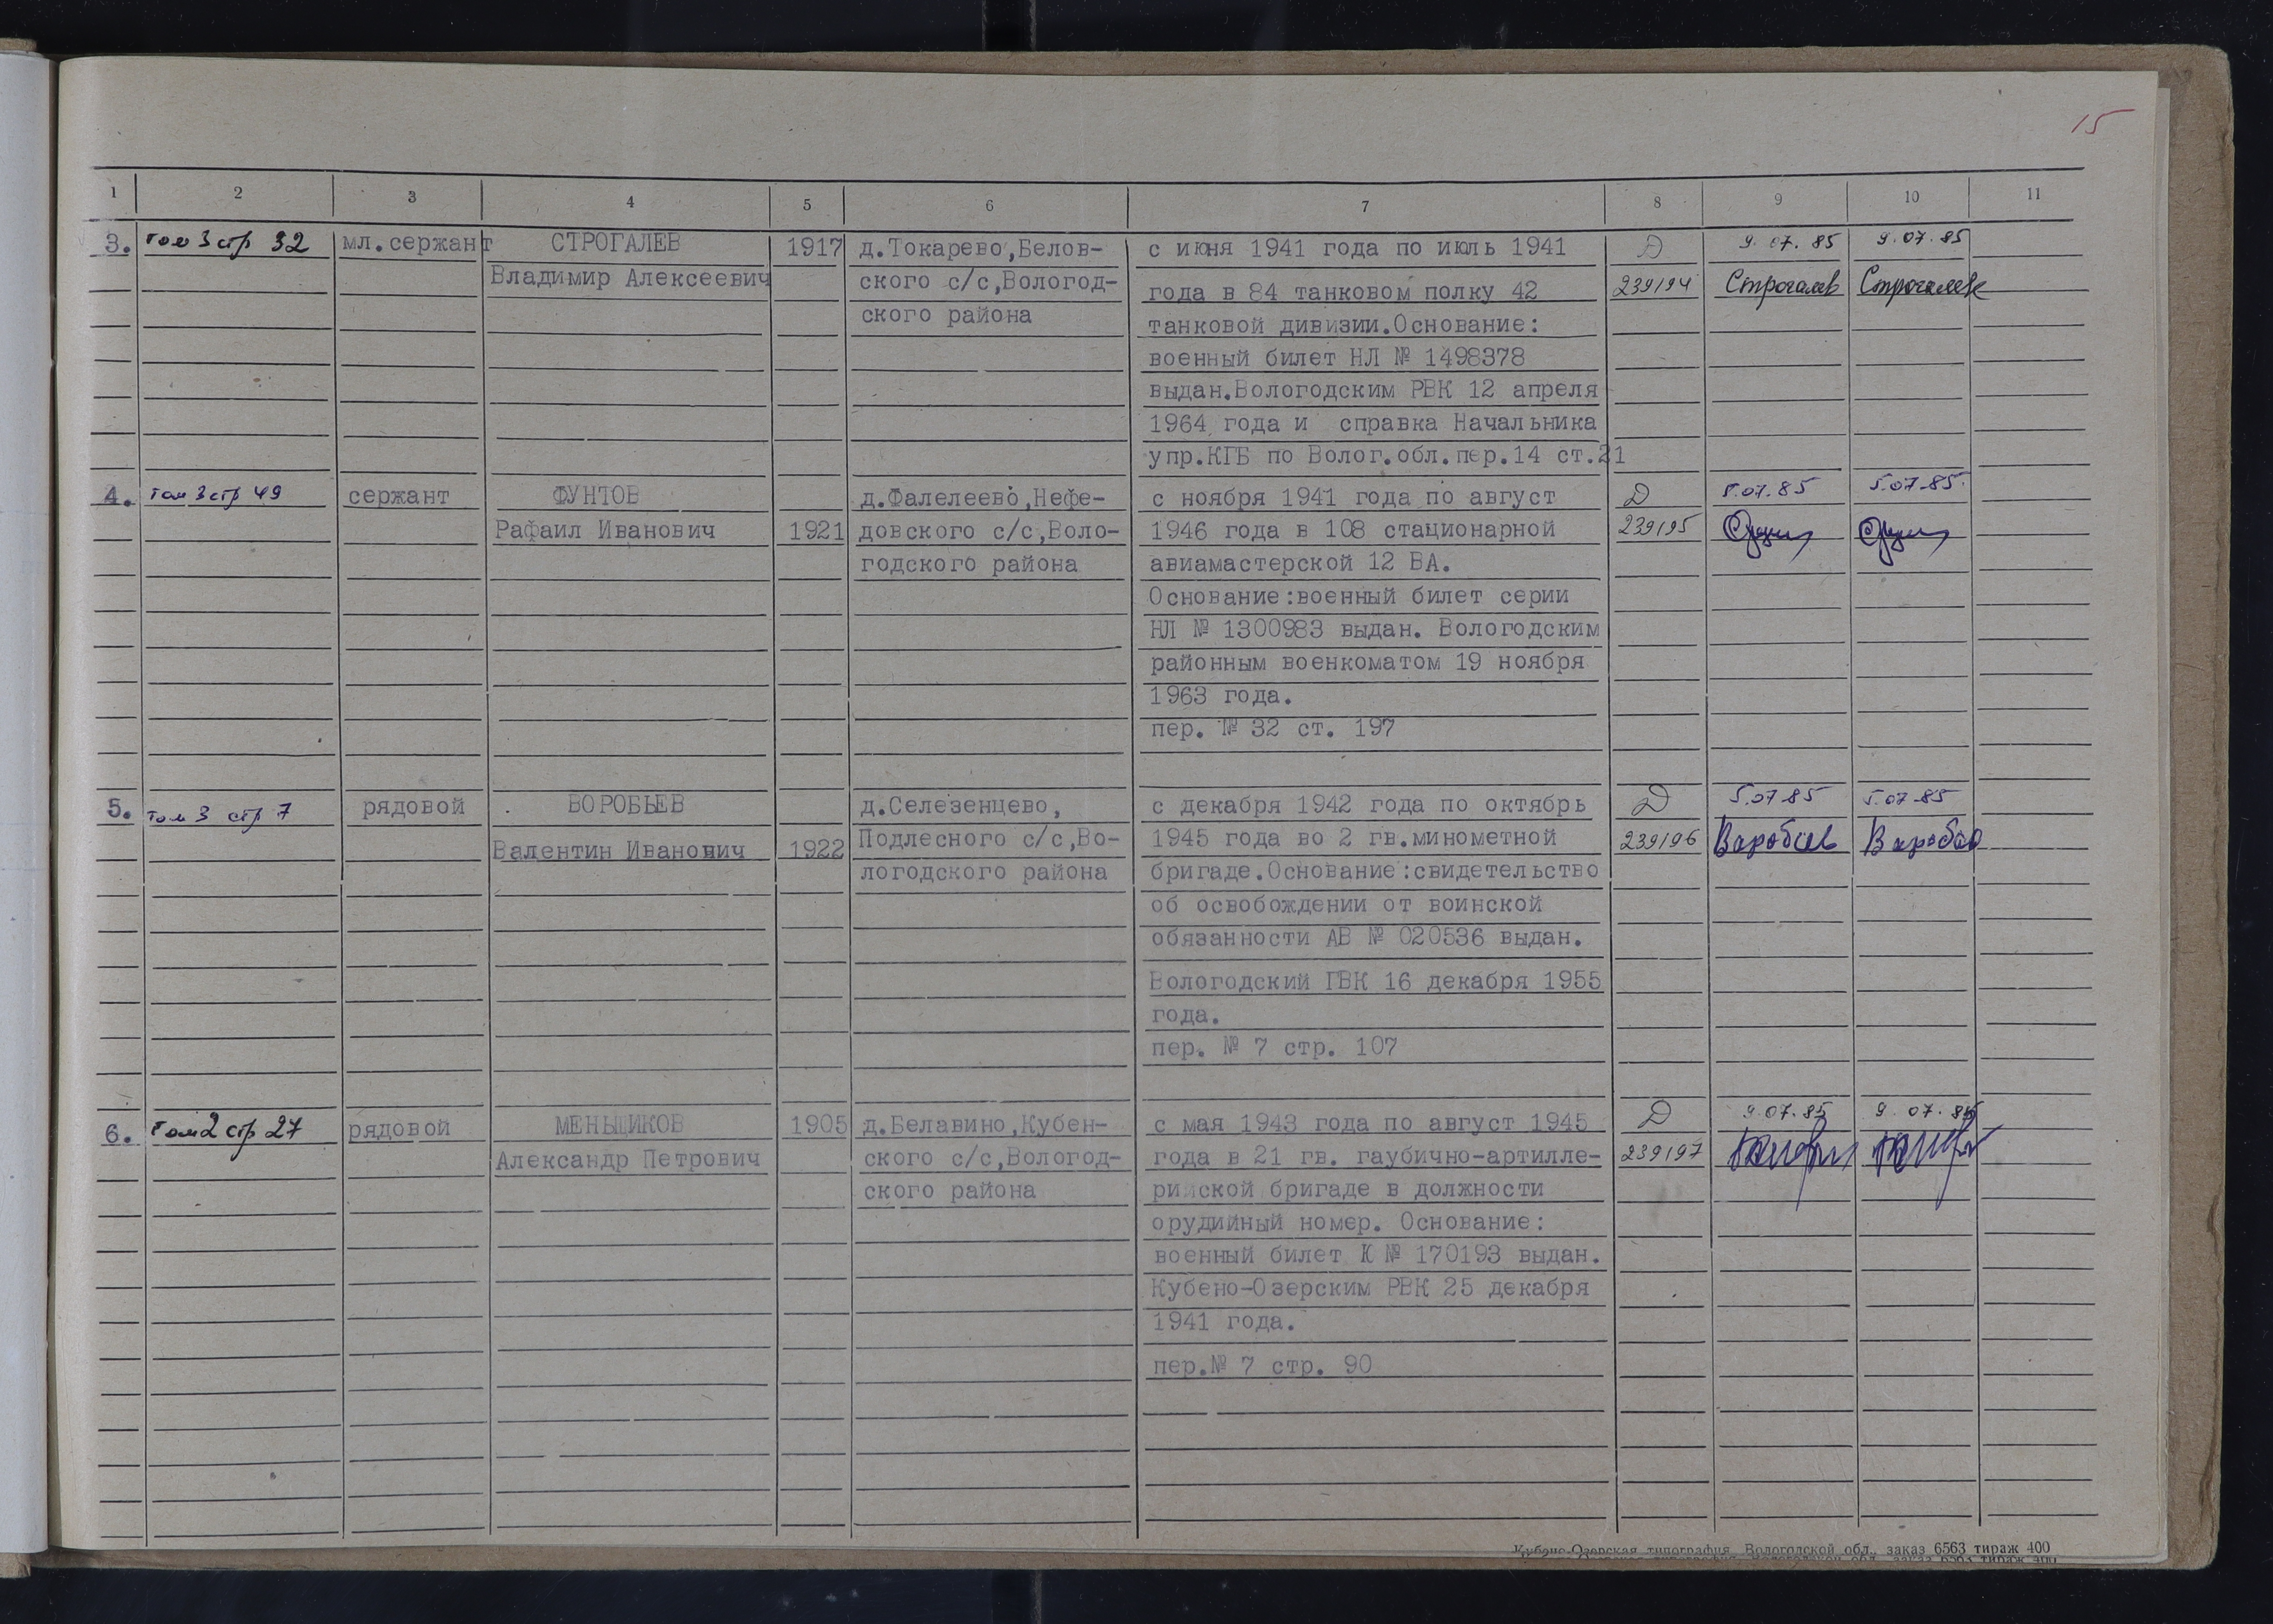 15
1 2 3 4 5 6 7 8 9 10 11
3. том 3 стр 32 мл.сержант СТРОГАЛЕВ 1917 д.Токарево,Белов- с июня 1941 года по июль 1941 Д 9.07.85 9.07.85
Владимир Алексеевич ского с/с,Вологод- года в 84 танковом полку 42 239194 Строгалев Строгалев
ского района танковой дивизии.Основание:
военный билет НЛ № 1498378
выдан.Вологодским РВК 12 апреля
1964 года и справка Начальника
упр.КГБ по Волог.обл.пер.14 ст.21
4. том 3 стр 49 сержант ФУНТОВ д.Фалелеево,Нефе- с ноября 1941 года по август Д 5.07.85 5.07.85.
Рафаил Иванович 1921 довского с/с,Воло- 1946 года в 108 стационарной 239195
годского района авиамастерской 12 ВА.
Основание:военный билет серии
НЛ № 1300983 выдан. Вологодским
районным военкоматом 19 ноября
1963 года.
пер. № 32 ст. 197
5. том 3 стр 7 рядовой ВОРОБЬЕВ д.Селезенцево, с декабря 1942 года по октябрь Д 5.07.85 5.07.85
Валентин Иванович 1922 Подлесного с/с,Во- 1945 года во 2 гв.минометной 239196
логодского района бригаде.Основание:свидетельство
об освобождении от воинской
обязанности АВ № 020536 выдан.
Вологодский ГВК 16 декабря 1955
года.
пер. № 7 стр. 107
6. том 2 стр 27 рядовой МЕНЬЩИКОВ 1905 д.Белавино,Кубен- с мая 1943 года по август 1945 Д 9.07.85 9.07.85
Александр Петрович ского с/с,Вологод- года в 21 гв. гаубично-артилле- 239197
ского района рийской бригаде в должности
орудийный номер. Основание:
военный билет К № 170193 выдан.
Кубено-Озерским РВК 25 декабря
1941 года.
пер.№ 7 стр. 90
Кубено-Озерская типография Вологодской обл., заказ 6563 тираж 400